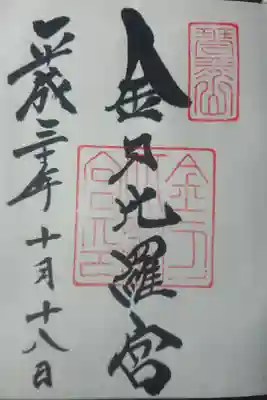 琴平山
金刀比羅宮
平成三十年十月十八日